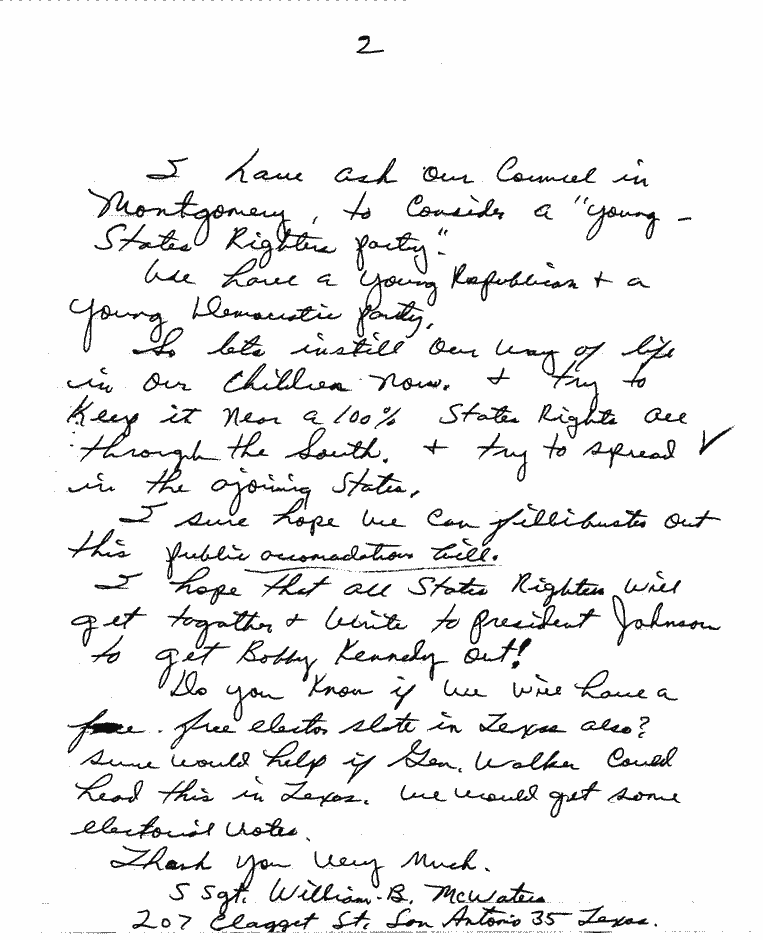 2
I have ask our Councel in
Montgomery, to Consider a "young -
States Righters party".
We have a young Republican + a
young Democratic party.
So lets instill our way of life
in our children now. + try to
Keep it near a 100% States Rights all
through the South. + try to spread ✓
in the ajoining States.
I sure hope we can fillibuster out
this public accomadation bill.
I hope that all States Righters will
get togather + write to president Johnson
to get Bobby Kennedy out!
Do you know if we will have a
free elector slate in Texas also?
Sure would help if Gen. Walker Could
head this in Texas. We would get some
electorial votes.
Thank you very much.
S Sgt. William B. McWaters
207 Clagget St. San Antonio 35 Texas.